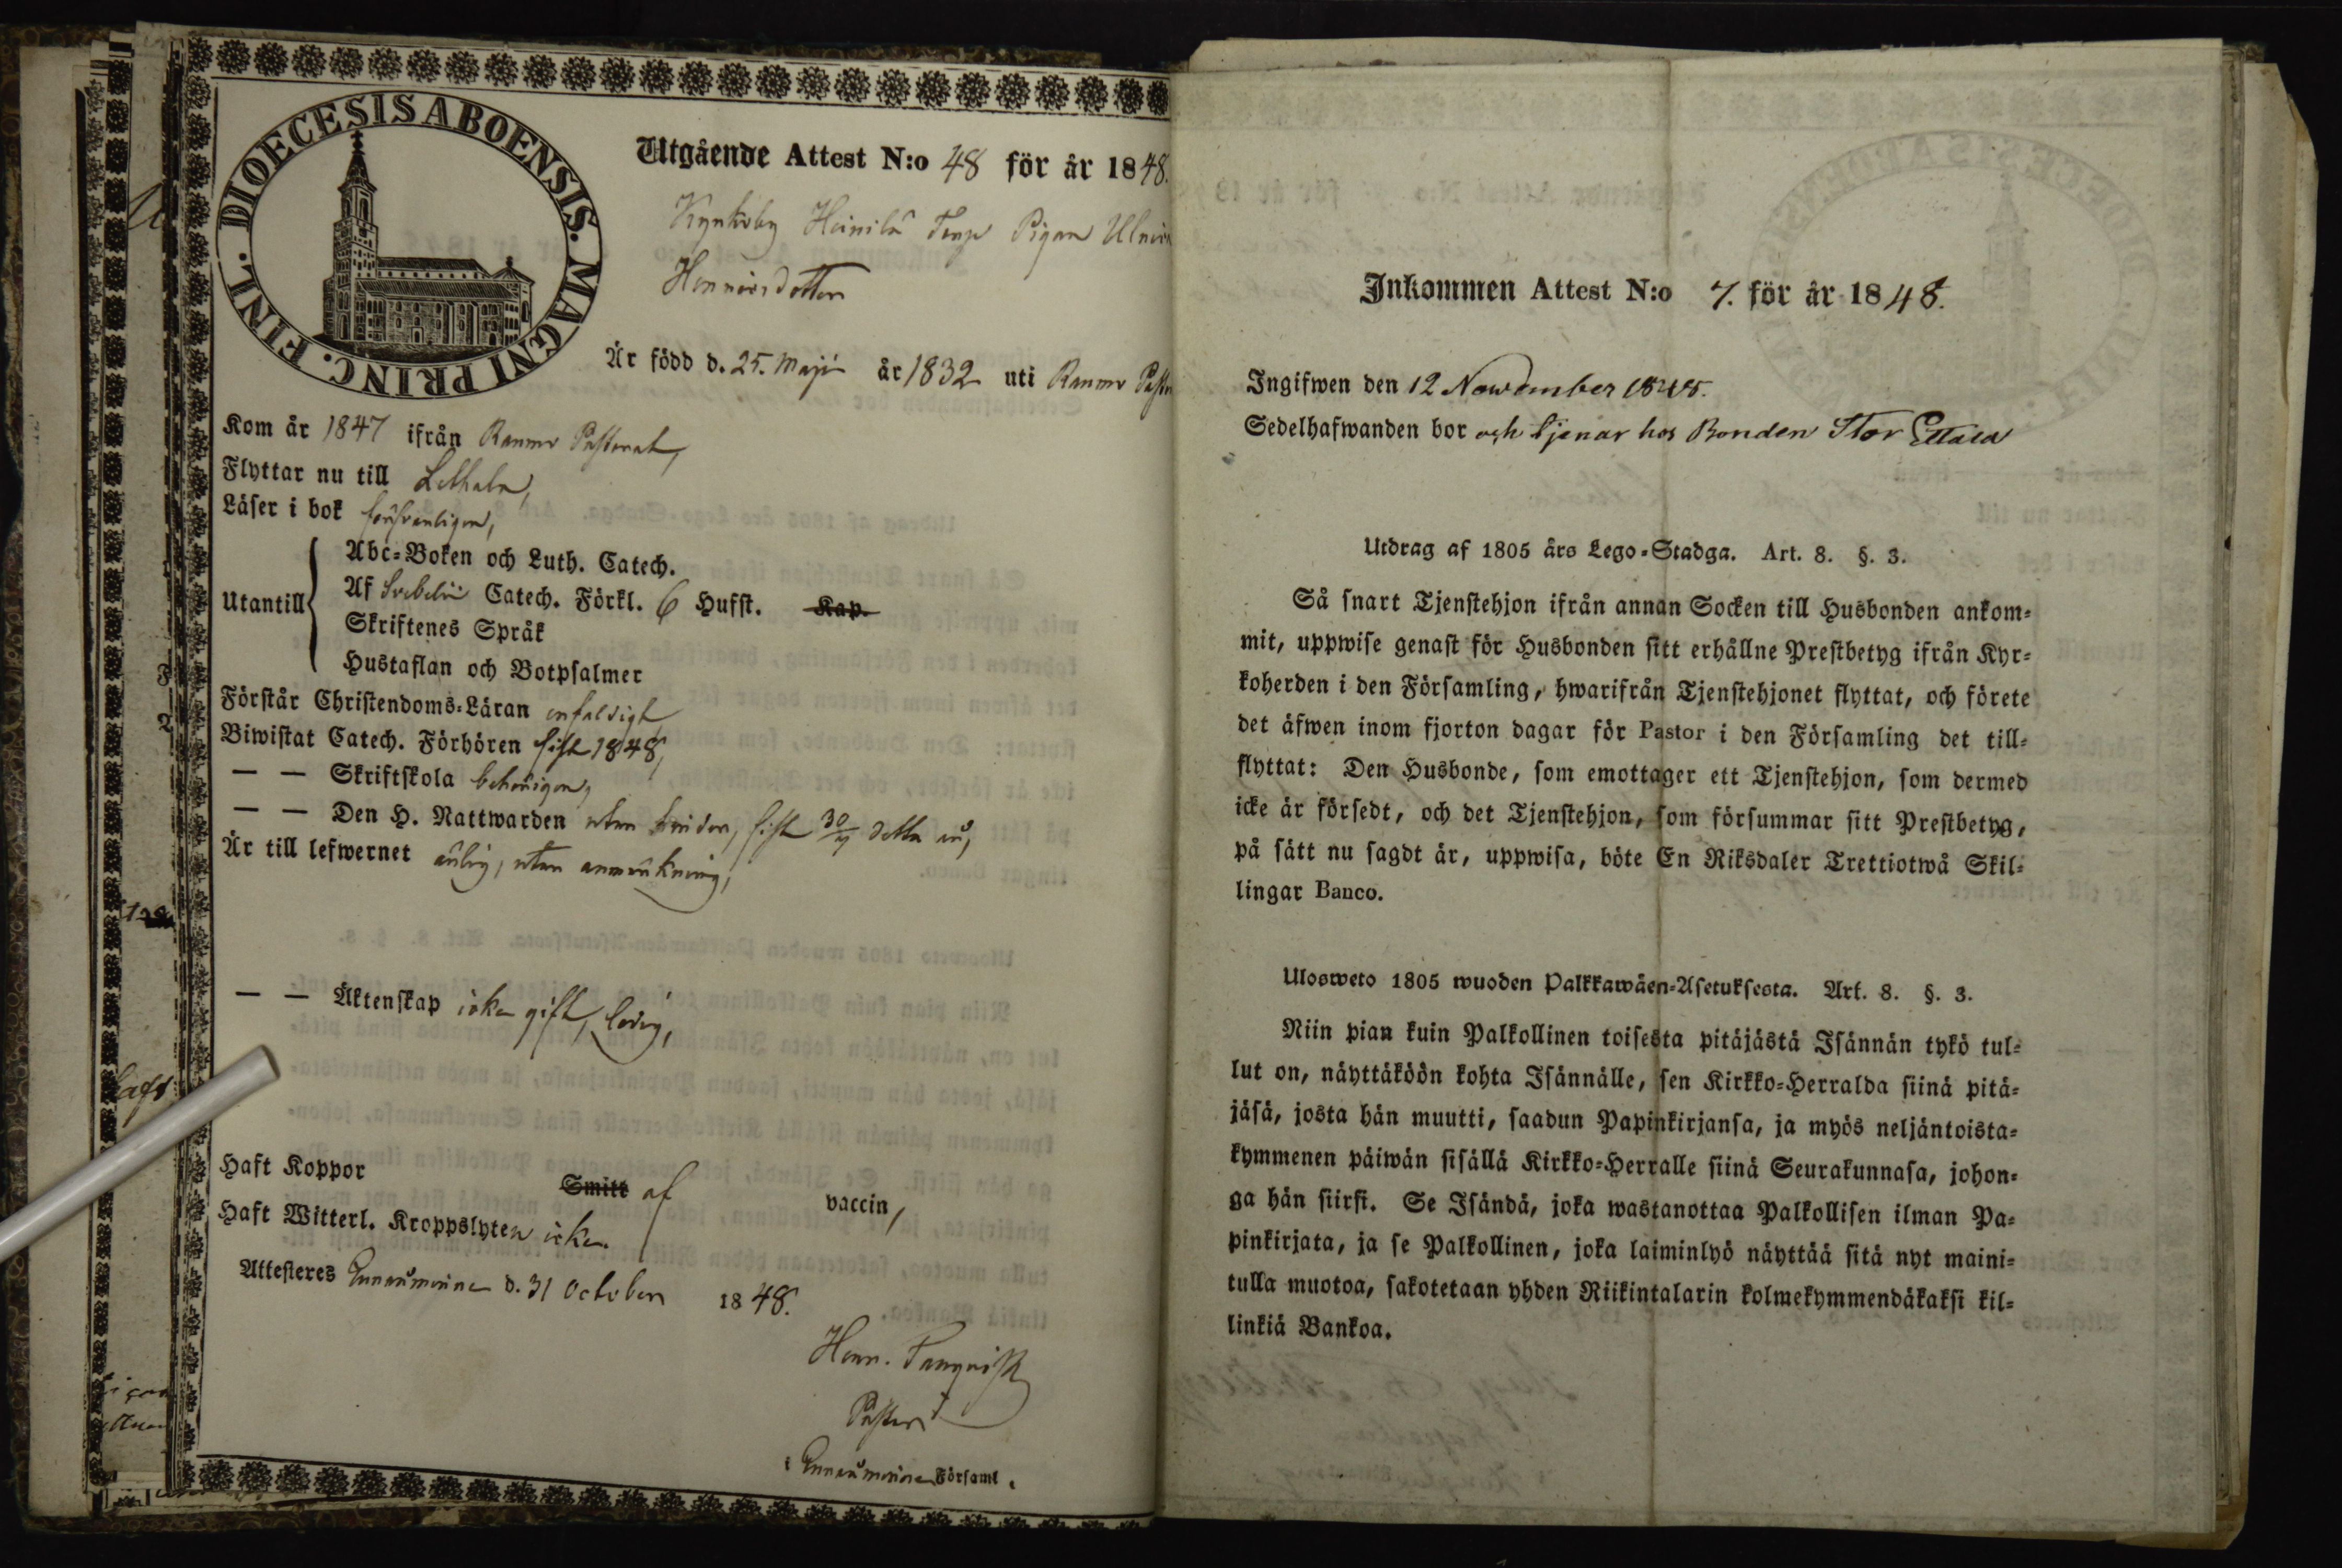 DIOECESIS ABOENSIS. MAGNI PRINC. FINL.
Utgående Attest N:o 48 för år 1848.
Heinilä Pigan
Är född d. 25. Maji år 1832 uti
Kom år 1847 ifrån
Flyttar nu till
Läser i bok försvarligen,
Utantill
Abc-Boken och Luth. Catech.
Af Svebelii Catech. Förkl. 6 Hufst. Kap.
Skriftenes Språk
Hustaflan och Botpsalmer
Förstår Christendoms-Läran enfaldigt
Biwistat Catech. Förhören sist 1848,
— — Skriftskola behörigen,
— — Den H. Nattwarden utan hinder, sist detta år,
Är till lefwernet ärlig, utan anmärkning,
— — Äktenskap icke gift, ledig,
Haft Koppor Smitt af vaccin,
Haft Witterl. Kroppslyten icke.
Attesteres d. 31 October 1848.
Henr.
Pastor
i Församl.
Inkommen Attest N:o 7. för år 1848.
Ingifwen den 12 November 1848.
Sedelhafwanden bor och tjenar hos Bonden Stor
Utdrag af 1805 års Lego-Stadga. Art. 8. §. 3.
Så snart Tjenstehjon ifrån annan Socken till Husbonden ankom-
mit, uppwise genast för Husbonden sitt erhållne Prestbetyg ifrån Kyr-
koherden i den Församling, hwarifrån Tjenstehjonet flyttat, och förete
det äfwen inom fjorton dagar för Pastor i den Församling det till-
flyttat: Den Husbonde, som emottager ett Tjenstehjon, som dermed
icke är försedt, och det Tjenstehjon, som försummar sitt Prestbetyg,
på sätt nu sagdt är, uppwisa, böte En Riksdaler Trettiotwå Skil-
lingar Banco.
Ulosweto 1805 wuoden Palkkawäen-Asetuksesta. Art. 8. §. 3.
Niin pian kuin Palkollinen toisesta pitäjästä Isännän tykö tul-
lut on, näyttäköön kohta Isännälle, sen Kirkko-Herralda siinä pitä-
jäsä, josta hän muutti, saadun Papinkirjansa, ja myös neljäntoista-
kymmenen päiwän sisällä Kirkko-Herralle siinä Seurakunnasa, johon-
ga hän siirsi. Se Isändä, joka wastanottaa Palkollisen ilman Pa-
pinkirjata, ja se Palkollinen, joka laiminlyö näyttää sitä nyt maini-
tulla muotoa, sakotetaan yhden Riikintalarin kolmekymmendäkaksi kil-
linkiä Bankoa.